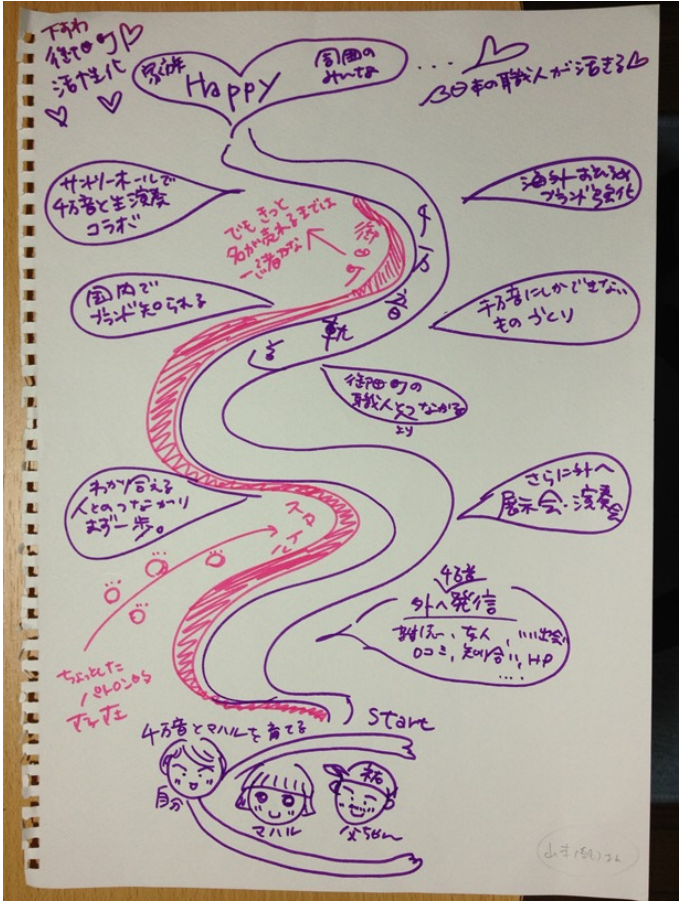 下すわ
御田町
活性化
家族
Happy
周囲の
みんな
・・・
日本の職人が活きる
サントリーホールで
千万音と生演奏
コラボ
海外おとろめ
ブランド強化
でもきっと
名が売れるまでは
一緒かな
街
千
万
音
軌
国内で
ブランド知られる
千万音にしかできない
ものづくり
御田町の
職人とつながる
より
わかり合える
人とのつながり
まず一歩。
スタイル
さらに外へ
展示会・演奏会
千万音
外へ発信
友人、いい出会い
口コミ、知り合い、HP
....
ちょっとした
パトロン的
存在
Start
千万音とマハルを育てる
自分
マハル
祐
父ちゃん